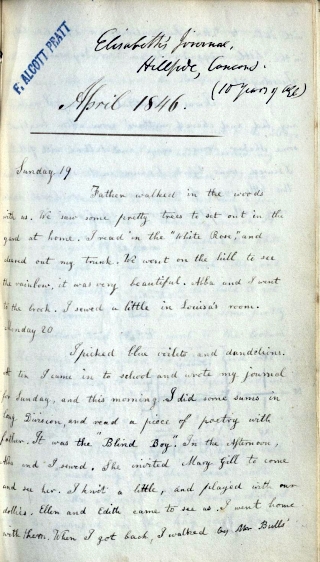 F. ALCOTT PRATT
Elizabeth's Journal,
Hillside, Concord.
(10 Years of age)
April 1846.
Sunday 19
Father walked in the woods
with us. We saw some pretty trees to set out in the
yard at home. I read in the "White Rose," and
cleared out my trunk. We went on the hill to see
the rainbow, it was very beautiful. Abba and I went
to the brook. I sewed a little in Louisa's room.
Monday 20
I picked blue violets and dandelions.
At ten I came in to school and wrote my journal
for Sunday, and this morning. I did some sums in
Long Division, and read a piece of poetry with
father. It was the "Blind Boy". In the Afternoon,
Abba and I sewed. She invited Mary Gill to come
and see her. I knit a little, and played with our
dollies. Ellen and Edith came to see us. I went home
with them. When I got back, I walked by Mr Bulls'